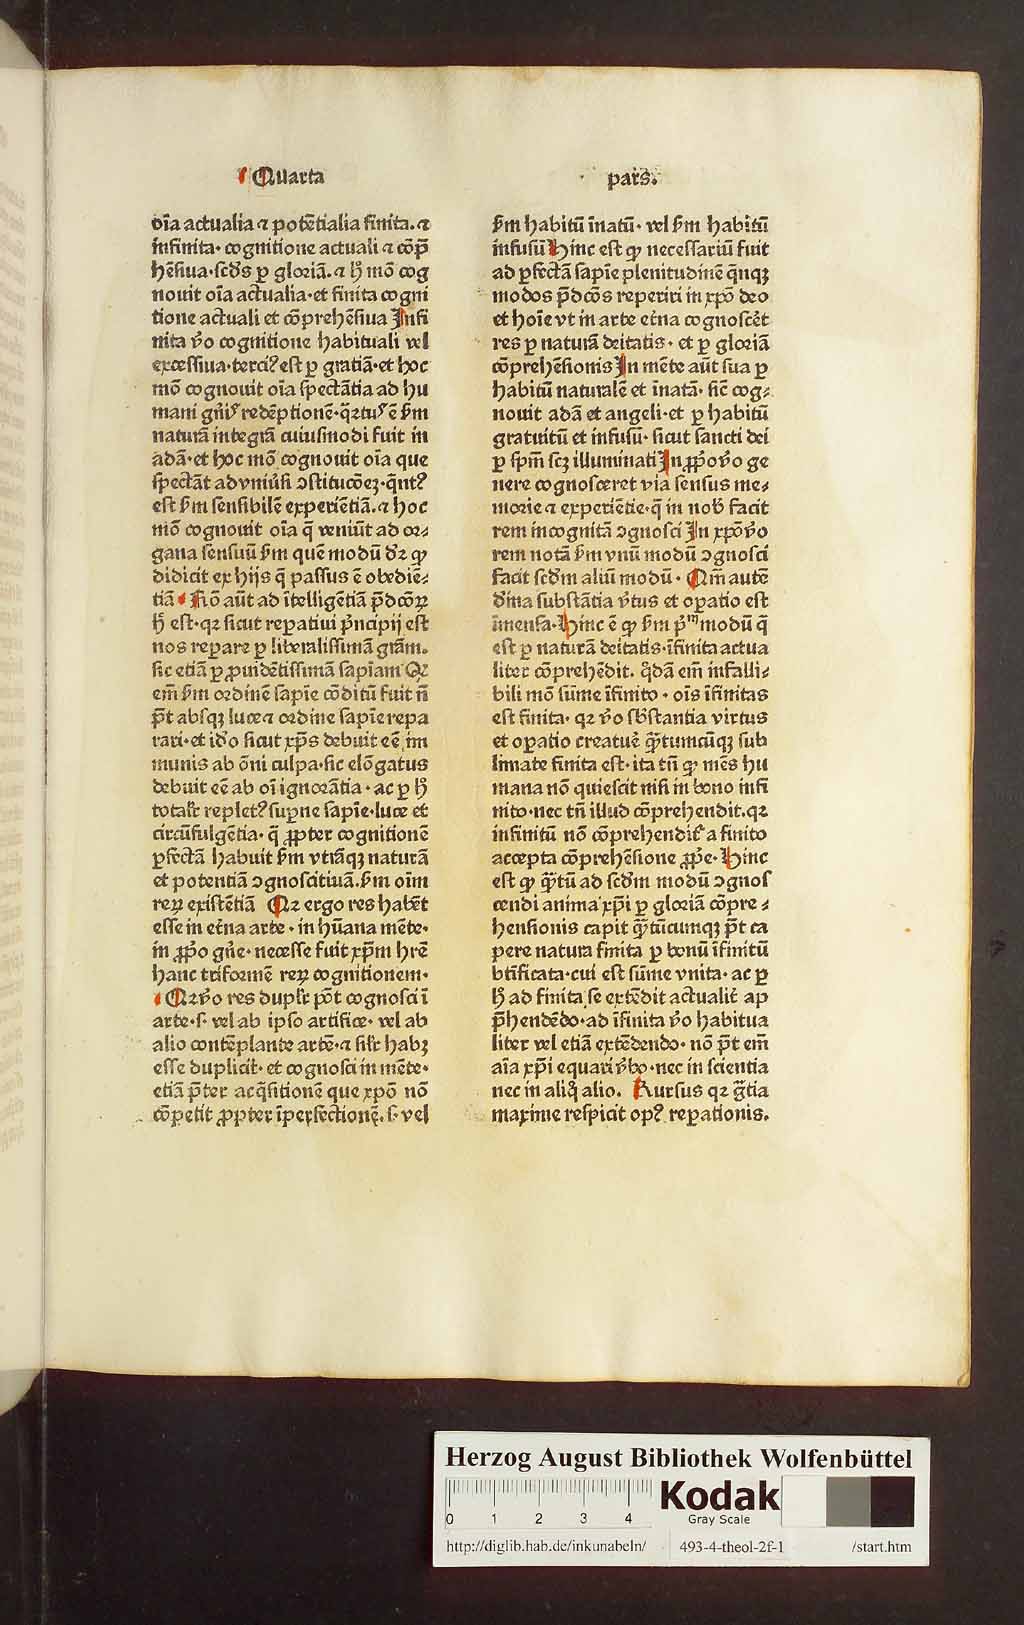 Quarta pars.
oīa actualia ⁊ potētialia finita. ⁊
infinita· cognitione actuali ⁊ cōp̄
hēsiua· scd̄s ꝑ gloriā. ⁊ hͦ mō cog
nouit oīa actualia· et finita cogni
tione actuali et cōprehēsiua Infi
nita v̄o cognitione habituali vel
excessiua· terciꝰ est ꝑ gratiā· et hoc
mō cognouit oīa spectātia ad hu
mani gn̄is redēptionē· q̄rtus ē s̄m
naturā integrā cuiusmodi fuit in
adā· et hoc mō cognouit oīa que
spectāt ad vniūsi ↄstitucōeꝫ· q̄ntꝰ
est s̄m sensibilē experiētiā. ⁊ hoc
mō cognouit oīa q̄ veniūt ad or⸗
gana sensuū s̄m quē modū dr̄ ꝙ
didicit ex hijs q̄ passus ē obediē⸗
tiā Rō aūt ad ītelligētiā p̄dcōꝝ
hͦ est· qꝛ sicut reꝑatiui p̄ncipij est
nos reꝑare ꝑ liberalissimā grām.
sic etiā ꝑ ꝓuidētissimā sapīam Qꝛ
em̄ s̄m ordinē sapīe cōditū fuit n̄
p̄t absqꝫ luce ⁊ ordine sapīe repa
rari· et id̄o sicut xp̄s debuit eē im
munis ab ōni culpa· sic elōgatus
debuit eē ab oī ignorātia· ac ꝑ hͦ
totalr̄ repletꝰ suꝑne sapīe· luce et
circūfulgētia· q̄ ꝓpter cognitionē
ꝑfectā habuit s̄m vtrāqꝫ naturā
et potentiā ↄgnoscitiuā. s̄m oīm
reꝝ existētiā Qꝛ ergo res habēt
esse in et̄na arte· in hūana mēte·
in ꝓpō gn̄e· necesse fuit xp̄m hr̄e
hanc triformē reꝝ cognitionem·
Qꝛ v̄o res duplr̄ pōt cognosci ī
arte· s· vel ab ipso artifice· vel ab
alio contēplante artē· ⁊ silr̄ habꝫ
esse duplicit̄· et cognosci in mēte·
etiā p̄ter acq̄sitionē que xpō nō
cōpetit ꝓpter īperfectionē. s· vel
s̄m habitū īnatū· vel s̄m habitū
infusū Hinc est ꝙ necessariū fuit
ad ꝑfectā sapīe plenitudinē q̄nqꝫ
modos p̄dcōs reperiri in xpō deo
et hoīe vt in arte et̄na cognoscēt
res ꝑ naturā deitatis· et ꝑ gloriā
cōprehēsionis In mēte aūt sua ꝑ
habitū naturalē et īnatā· sic̄ cog⸗
nouit adā et angeli· et ꝑ habitū
gratuitū et infusū· sicut sancti dei
ꝑ sp̄m scꝫ illuminati In ꝓpō v̄o ge
nere cognosceret via sensus me⸗
morie ⁊ experiētie· q̄ in nob̄ facit
rem incognitā ↄgnosci In xpō v̄o
rem notā s̄m vnū modū ↄgnosci
facit scd̄m aliū modū· Qm̄ autē
d̄ina substātia v̄tus et oꝑatio est
īmensa· Hinc ē ꝙ s̄m p̄ᵐ modū q̄
est ꝑ naturā deitatis· īfinita actua
liter cōprehēdit. q̄dā em̄ infalli⸗
bili mō sūme īfinito· oīs īfinitas
est finita· qꝛ v̄o sb̄stantia virtus
et oꝑatio creatuē q̄tumcūqꝫ sub
limate finita est· ita tn̄ ꝙ mēs hu
mana nō quiescit nisi in bono infi
nito· nec tn̄ illud cōprehendit. qꝛ
infinitū nō cōprehendit̄ a finito
accepta cōprehēsione ꝓpe· Hinc
est ꝙ q̄tū ad scd̄m modū ↄgnos
cendi anima xp̄i ꝑ gloriā cōpre⸗
hensionis capit q̄tūcumqꝫ p̄t ca
pere natura finita ꝑ bonū īfinitū
btīficata· cui est sūme vnita· ac ꝑ
hͦ ad finita se extēdit actualit̄ ap
p̄hendēdo· ad īfinita v̄o habitua
liter vel etiā extēdendo· nō p̄t em̄
aīa xp̄i equari v̄bo· nec in scientia
nec in aliq̄ alio. Rursus qꝛ gr̄tia
maxime respicit opꝰ reꝑationis.
Herzog August Bibliothek Wolfenbüttel
0 1 2 3 4
Kodak
Gray Scale
http://diglib.hab.de/inkunabeln/ 493-4-theol-2f-1 /start.htm